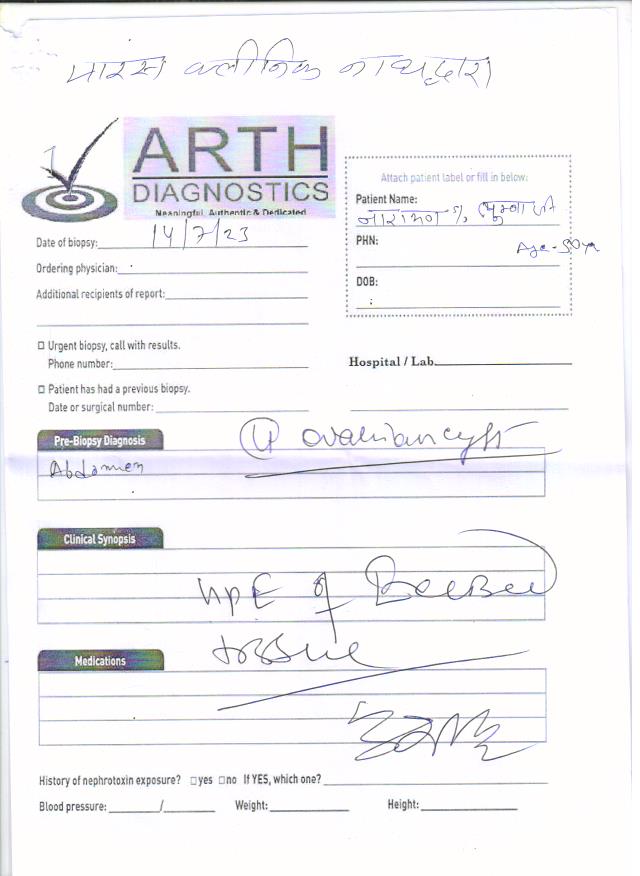 पारस क्लीनिक नाथद्वारा
ARTH
DIAGNOSTICS
Meaningful, Authentic & Dedicated
Attach patient label or fill in below:
Patient Name:
PHN:
Age - 50 yr
DOB:
Date of biopsy: 14/7/23
Ordering physician:
Additional recipients of report:
□ Urgent biopsy, call with results.
Phone number:
Hospital / Lab.
□ Patient has had a previous biopsy.
Date or surgical number:
Pre-Biopsy Diagnosis
ovarian cyst
Abdomen
Clinical Synopsis
HPE of
tissue
Medications
History of nephrotoxin exposure? □yes □no If YES, which one?
Blood pressure: / Weight: Height: